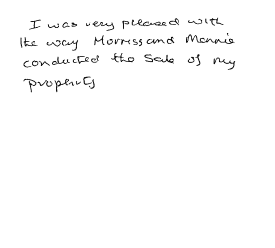 I was very pleased with
the way Morriss and Mennie
conducted the Sale of my
property